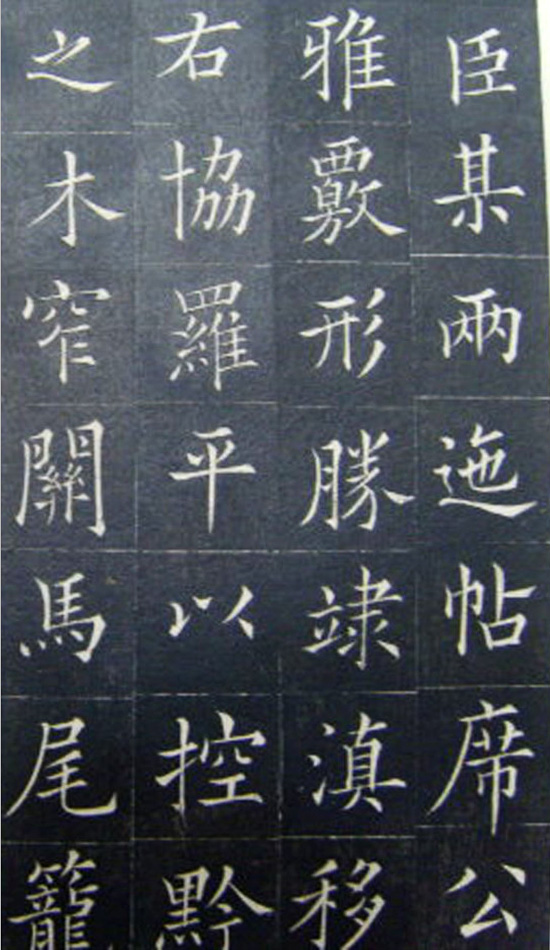 臣某兩迤帖席公
雅覈形勝隷滇移
右協羅平以控黔
之木窄關馬尾籠